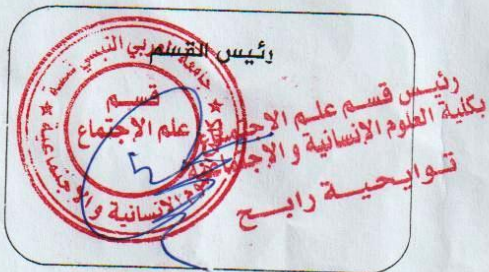 رئيس القسم
جامعة العربي التبسي تبسة
قسم
علم الإجتماع
العلوم الإنسانية و الإجتماعية
رئيس قسم علم الإجتماع
بكلية العلوم الإنسانية و الإجتماعية
توايحية رابح